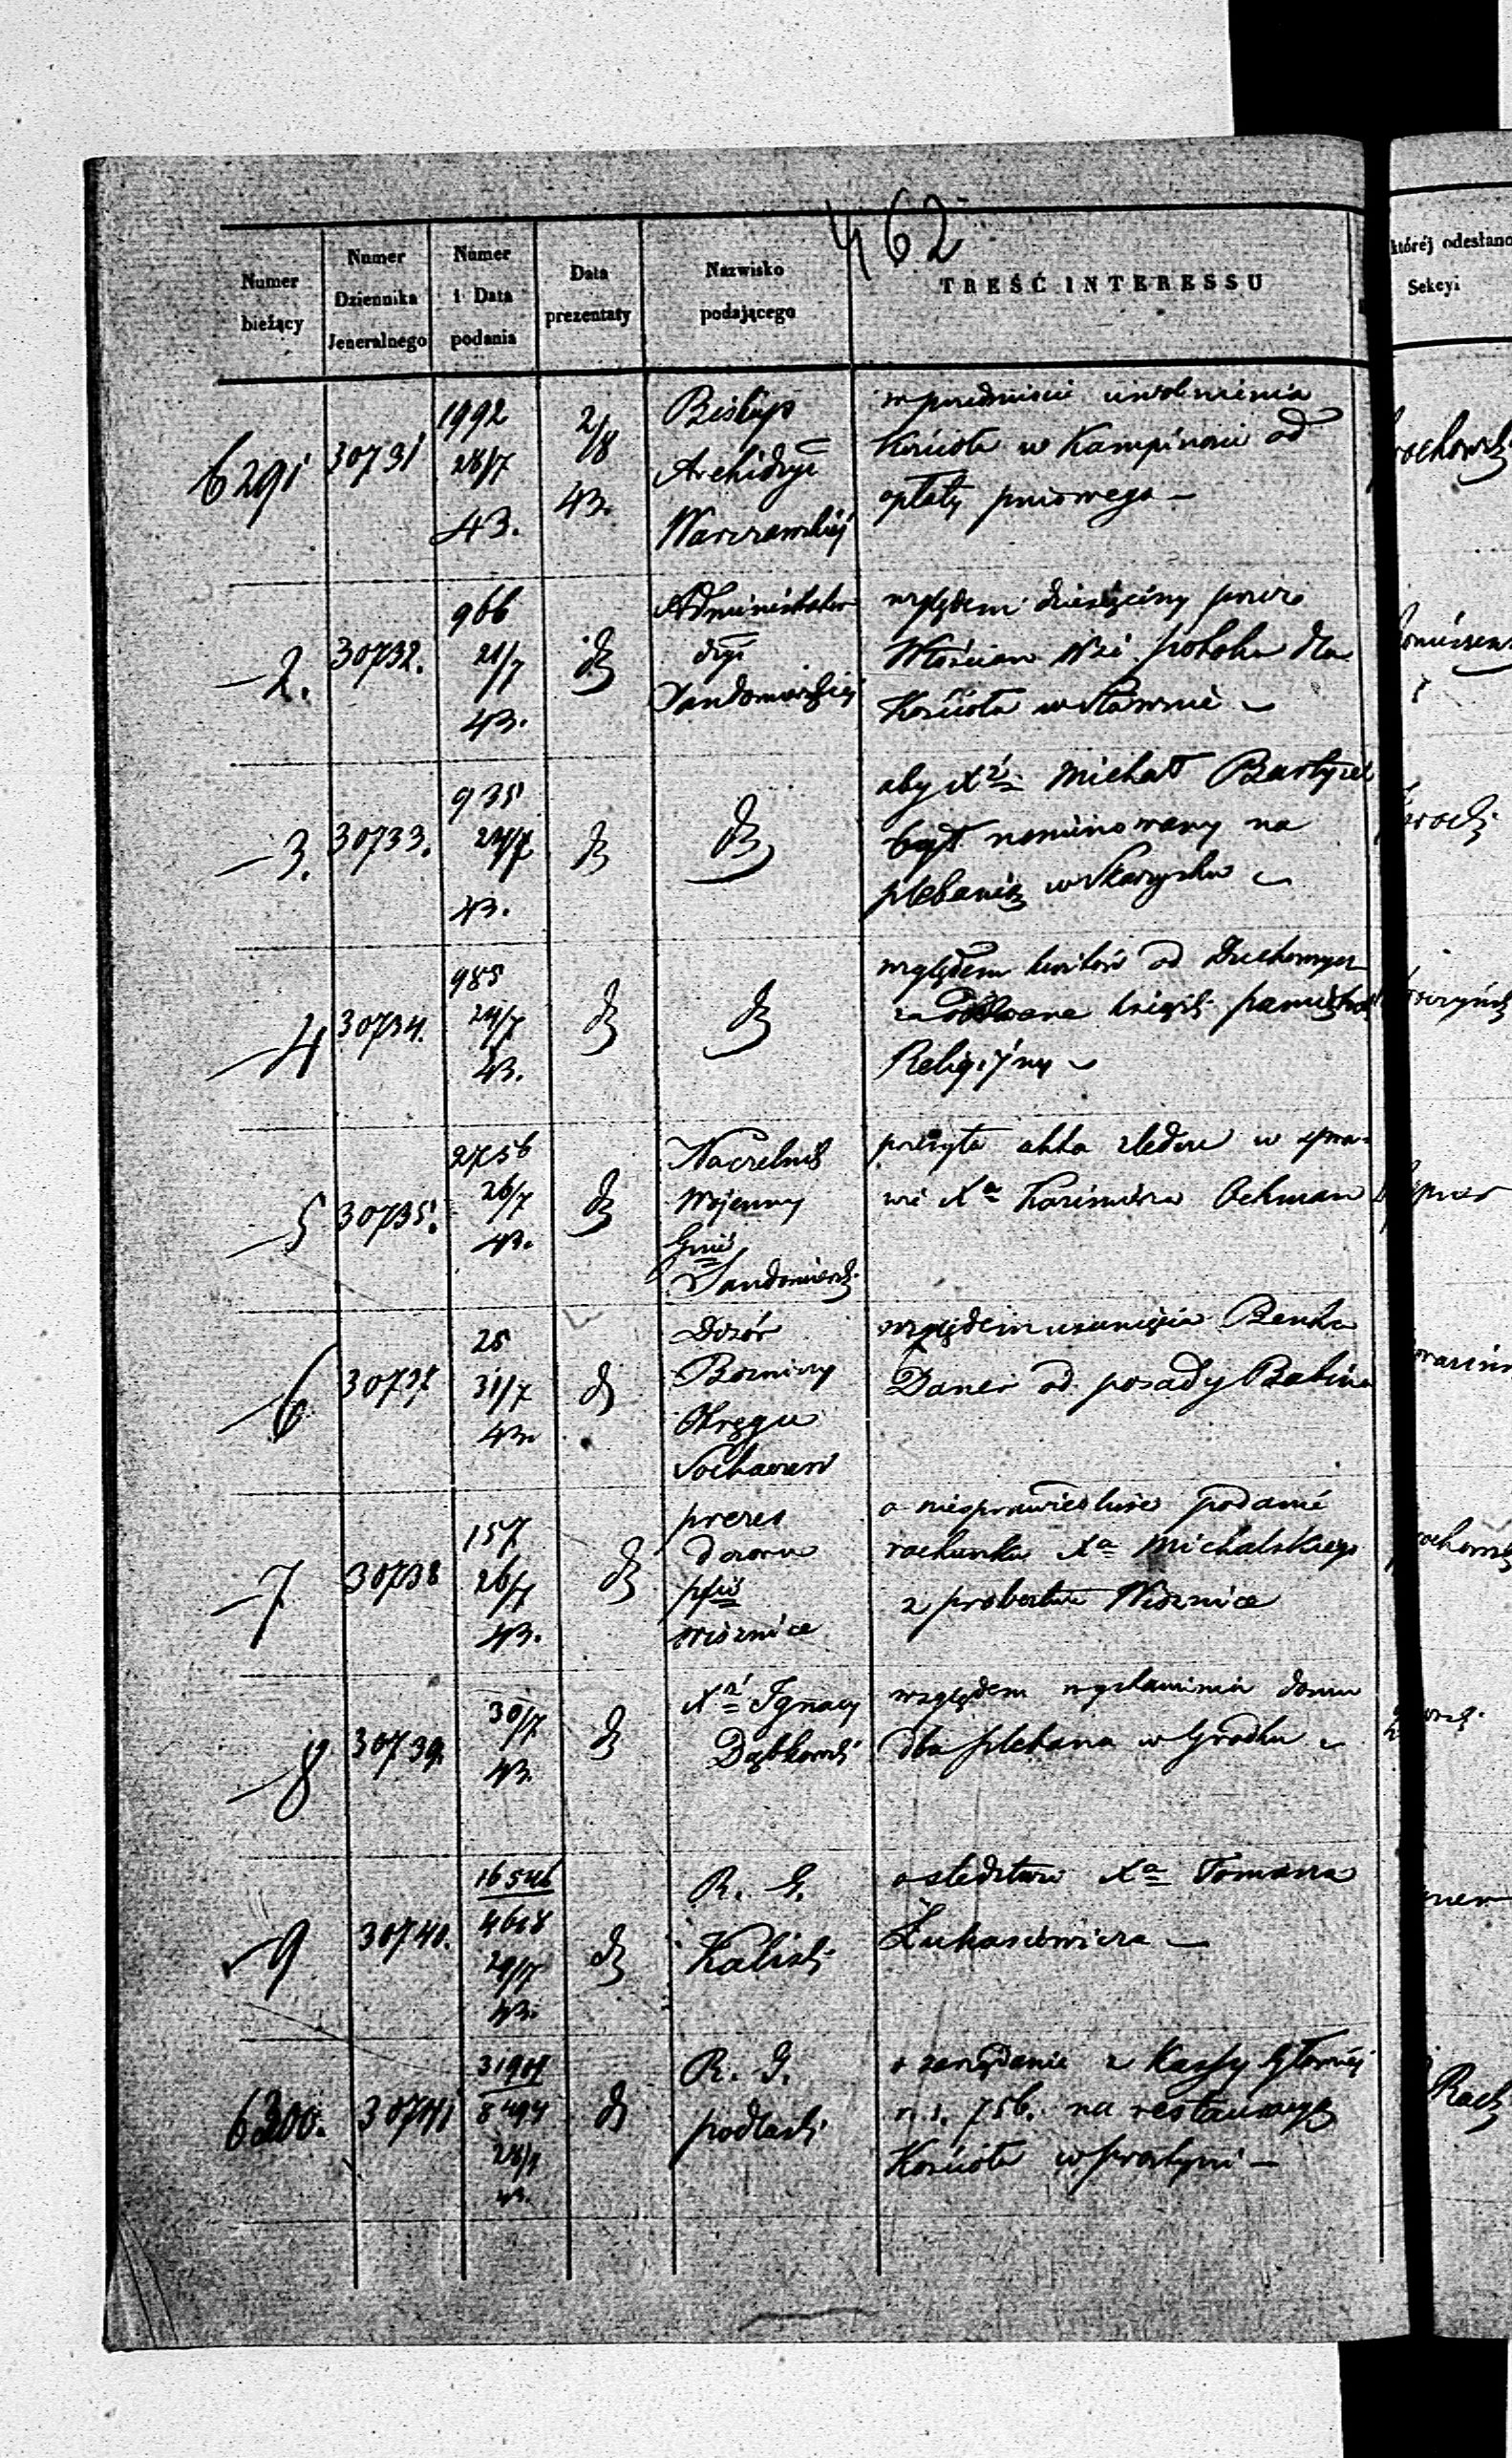 462
Numer bieżący
Numer Dziennika Jeneralnego
Numer i Data podania
Data prezentaty
Nazwisko podającego
TREŚĆ INTERESSU
której odesłano
Sekcyi
6291 30731 1992 28/7 43. 2/8 43.
Biskup
Archidyi
Warszawskiej
w przedmiocie uwolnienia
Kościoła w Kampinosie od
opłaty pniowego —
2. 30732. 966 21/7 43. dt
Administrator
dyi
Sandomierskiej
względem dziesięciny przez
Włościan Wsi potoka dla
Kościoła w Sławnie
3. 30733. 935 24/7 43. dt
dt
aby Xdz Michał Bartyzel
był nominowany na
plebanię w Skaryszu
4 30734. 985 24/7 43. dt
dt
względem kwitów od Duchownych
za odebrane księgi pamiętnik
Religijny
5 30735. 2756 26/7 43. dt
Naczelnik
Wojenny
Gnii
Sandomiersk.
przesyła akta śledcze w spra-
wie Xa Kazimierza Ochman
6 3073 28 31/7 43. dt
Dozór
Bozniczy
Okręgu
Sochaczew
względem usunięcia Benka
Daner od posady Rabina
7 30738 157 26/7 43. dt
prezes
dozoru
pfii
Wisznice
o niesprawiedliwe podanie
rachunku Xa Michalskiego
z probostwa Wisznice
8 30739. 30/7 43. dt
Xdz Ignacy
Dąbkowski
względem wystawienia domu
dla plebana w Grodku
9 30740. 16546 4618 29/7 43. dt
R. G.
Kaliski
o śledztwie Xa Tomasza
Łukasiewicza —
6300. 30741 31909 8494 28/7 43. dt
R. G.
podlaski
o zarządzenie z Kassy Głównej
r. s. 756. na restauracyą
Kościoła w prostyni —